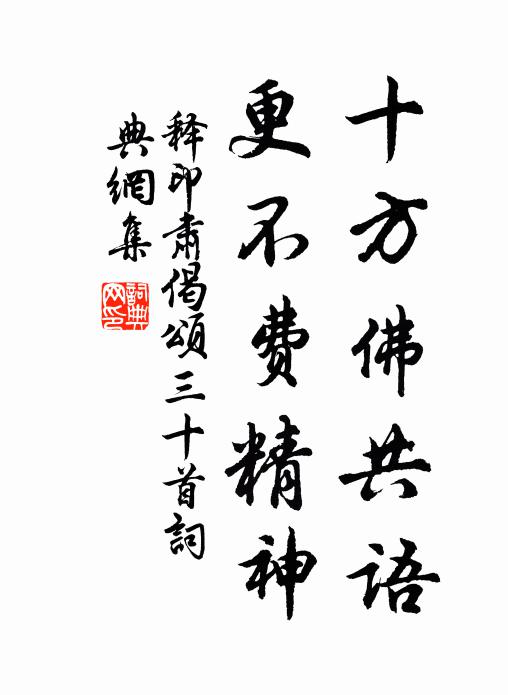 十方佛共語
更不費精神
释印肃偈頌三十首詞
典網集
詞典網印